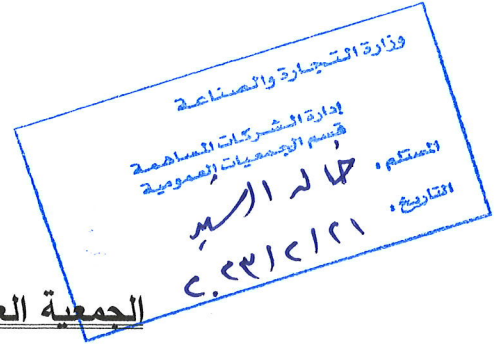 وزارة التجارة والصناعة
إدارة الشركات المساهمة
قسم الجمعيات العمومية
المستلم : خالد السيد
التاريخ : ٢٠٢٣/٢/٢١
الجمعية الع